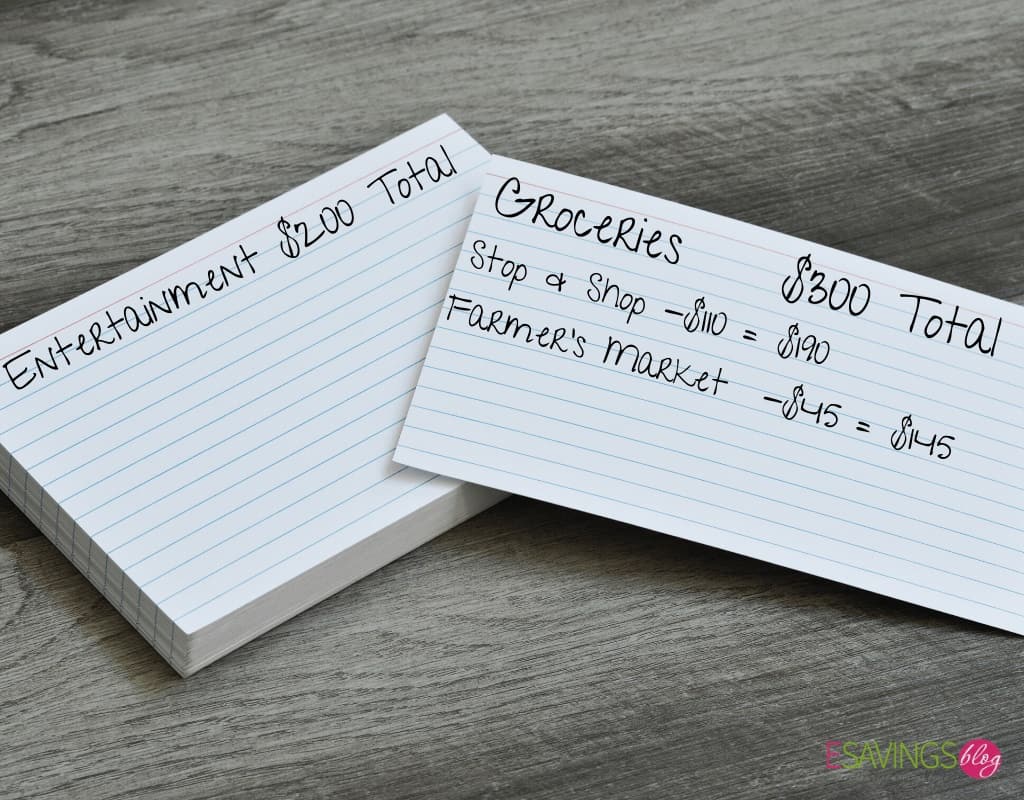 Entertainment $200 Total
Groceries $300 Total
Stop & Shop -$110 = $190
Farmer's Market -$45 = $145
ESAVINGSblog